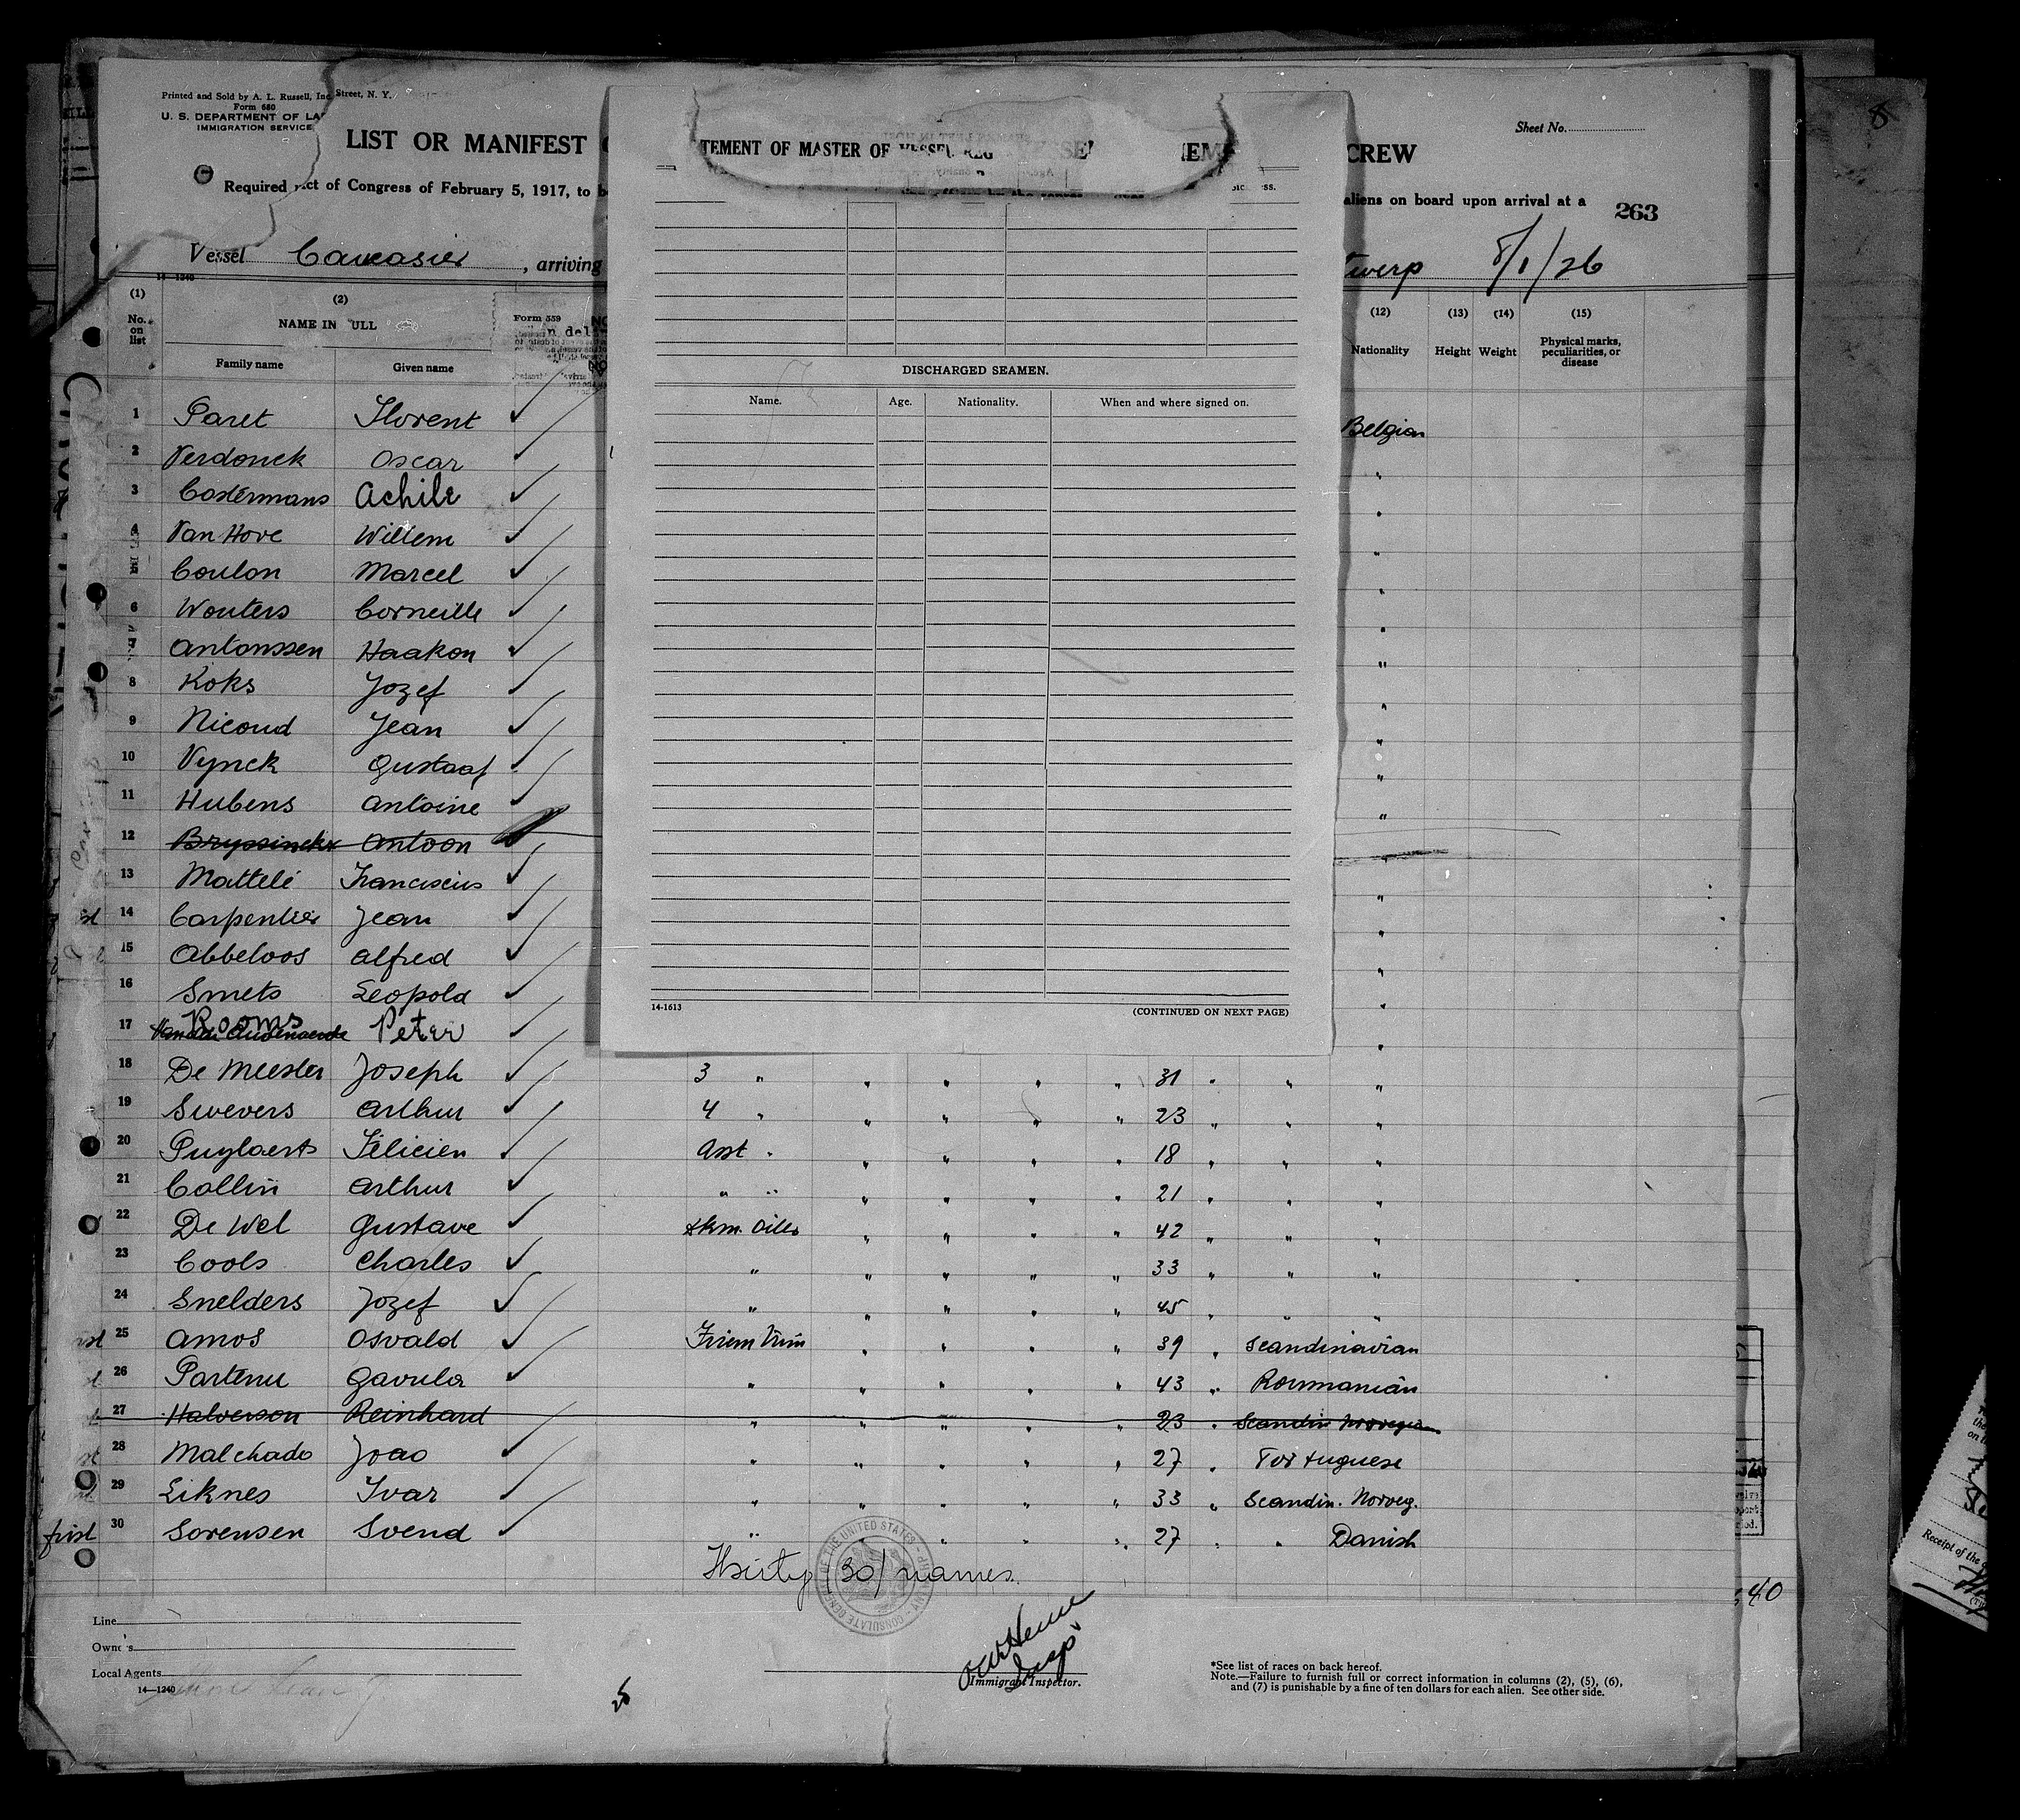 Printed and Sold by A. L. Russell, Inc. Street, N. Y.
Form 680
U. S. DEPARTMENT OF LA
IMMIGRATION SERVICE
Sheet No.
LIST OR MANIFEST
TEMENT OF MASTER OF VESSEL REG
CREW
Required Act of Congress of February 5, 1917, to b
aliens on board upon arrival at a
263
Vessel Caucasier, arriving
twerp 8/1/26
14-1240
(1) No. on list
(2) NAME IN ULL
Family name Given name
Form 559
(12) Nationality
(13) Height
(14) Weight
(15) Physical marks, peculiarities, or disease
DISCHARGED SEAMEN.
Name. Age. Nationality. When and where signed on.
1 Paret Florent Belgian
2 Verdonck Oscar "
3 Costermans Achile "
4 Van Hove Willem "
5 Coulon Marcel "
6 Wouters Corneille "
7 Antonssen Haakon "
8 Koks Jozef "
9 Nicoud Jean "
10 Vynck Gustaaf "
11 Hubens Antoine "
12 Bryssinckx Antoon "
13 Mattelé Franciscus "
14 Carpentier Jean "
15 Abbeloos Alfred "
16 Smets Leopold "
17 Rooms Peter "
14-1613 (CONTINUED ON NEXT PAGE)
18 De Meester Joseph 3 " " " " " 31 " " "
19 Swevers Arthur 4 " " " " " 23 " " "
20 Puylaert Félicien Asst " " " " " 18 " " "
21 Collin Arthur " " " " " " 21 " " "
22 De Wel Gustave " " " " 42 " " "
23 Cools Charles " " " " " 33 " " "
24 Snelders Jozef " " " " " 45 " " "
25 Amos Osvald " " " " 39 " Scandinavian
26 Partenu Gavrila " " " " " 43 " Roumanian
27 Halverson Reinhard " " " " " 23 " Scandin Norvegian
28 Malchado Joao " " " " " 27 " Portuguese
29 Liknes Ivar " " " " " 33 " Scandin. Norveg.
first 30 Sorensen Svend " " " " 27 " " Danish
Thirty (30) names.
40
Line
Owners
Local Agents
14—1240
25
Insp
Immigrant Inspector.
*See list of races on back hereof.
Note.—Failure to furnish full or correct information in columns (2), (5), (6),
and (7) is punishable by a fine of ten dollars for each alien. See other side.
Receipt of the